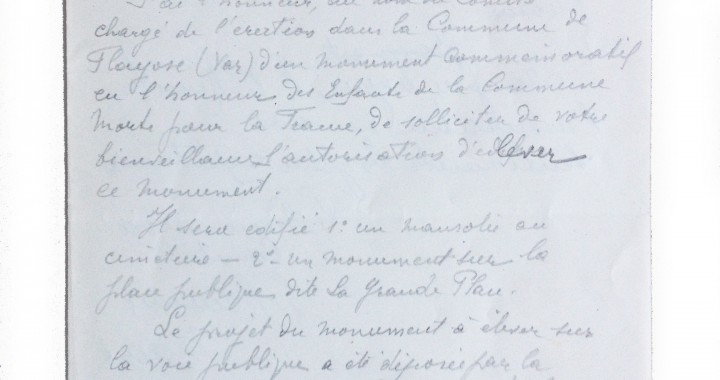 J'ai l'honneur, au nom du Comité
chargé de l'érection dans la Commune de
Flayosc (Var) d'un monument commémoratif
en l'honneur des Enfants de la Commune
morts pour la France, de solliciter de votre
bienveillance l'autorisation d'élever
ce monument.
Il sera édifié 1º un mausolée au
cimetière — 2º un monument sur la
place publique dite La Grande Place.
Le projet du monument à élever sur
la voie publique a été déposé par la